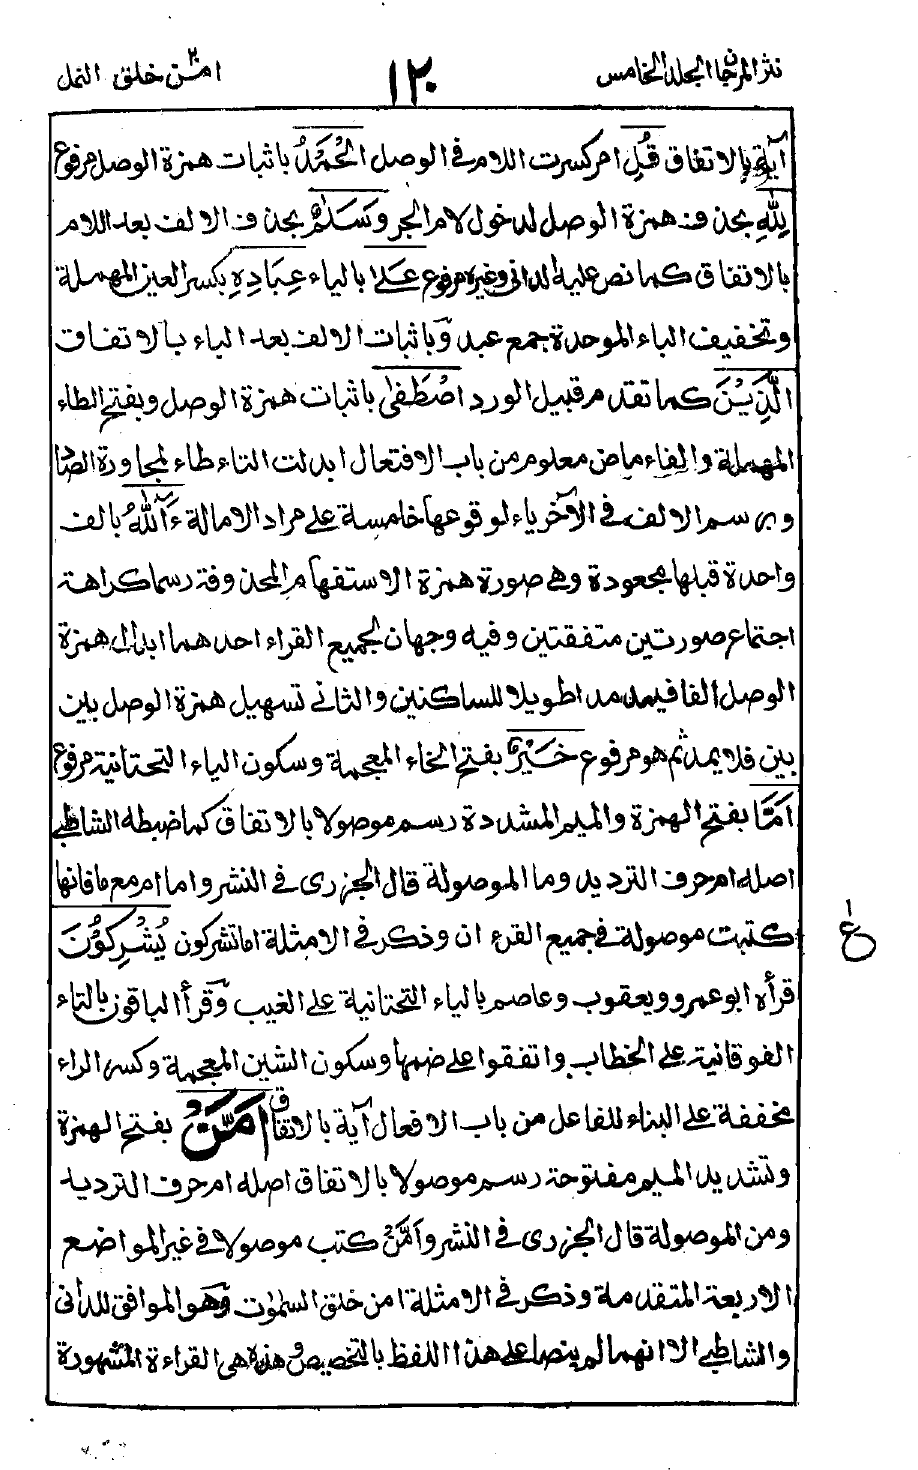 نثر المرجان الجلد الخامس
١٢٠
امّن خلق ٢٠ النمل
آية بالاتفاق قُلِ امر كسرت اللام فى الوصل الْحَمْدُ باثبات همزة الوصل مرفوع
لِلّٰهِ بحذف همزة الوصل لدخول لام الجر وَسَلٰمٌ بحذف الالف بعد اللام
بالاتفاق كما نص عليه الدانى وغيره مرفوع عَلٰى بالياء عِبَادِهِ بكسر العين المهملة
وتخفيف الباء الموحدة جمع عبد وباثبات الالف بعد الباء بالاتفاق
الَّذِيْنَ كما تقدم قبيل الورد اصْطَفٰى باثبات همزة الوصل وبفتح الطاء
المهملة والفاء ماض معلوم من باب الافتعال ابدلت التاء طاء لمجاورة الصاد
وبرسم الالف فى الآخر ياء لوقوعها خامسة على مراد الامالة ءَآللّٰهُ بالف
واحدة قبلها مجعودة وهى صورة همزة الاستفهام المحذوفة رسما كراهة
اجتماع صورتين متفقتين وفيه وجهان لجميع القراء احدهما ابدال همزة
الوصل الفا فيمد مدا طويلا للساكنين والثانى تسهيل همزة الوصل بين
بين فلا يمد ثم هو مرفوع خَيْرٌ بفتح الخاء المعجمة وسكون الياء التحتانية مرفوع
اَمَّا بفتح الهمزة والميم المشددة رسم موصولا بالاتفاق كما ضبطه الشاطبى
اصله ام حرف الترديد وما الموصولة قال الجزرى فى النشر واما ام مع ما فانها
كتبت موصولة فى جميع القرءان وذكر فى الامثلة اما تشركون يُشْرِكُوْنَ
ع
١
قرأه ابو عمرو ويعقوب وعاصم بالياء التحتانية على الغيب وقرأ الباقون بالتاء
الفوقانية على الخطاب واتفقوا على ضمها وسكون الشين المعجمة وكسر الراء
مخففة على البناء للفاعل من باب الافعال آية بالاتفاق اَمَّنْ بفتح الهمزة
وتشديد الميم مفتوحة رسم موصولا بالاتفاق اصله ام حرف الترديد
ومن الموصولة قال الجزرى فى النشر واَمَّنْ كتب موصولا فى غير المواضع
الاربعة المتقدمة وذكر فى الامثلة امن خلق السمٰوٰت وهو الموافق للدانى
والشاطبى الا انهما لم ينصا على هذا اللفظ بالتخصيص وهذه هى القراءة المشهورة